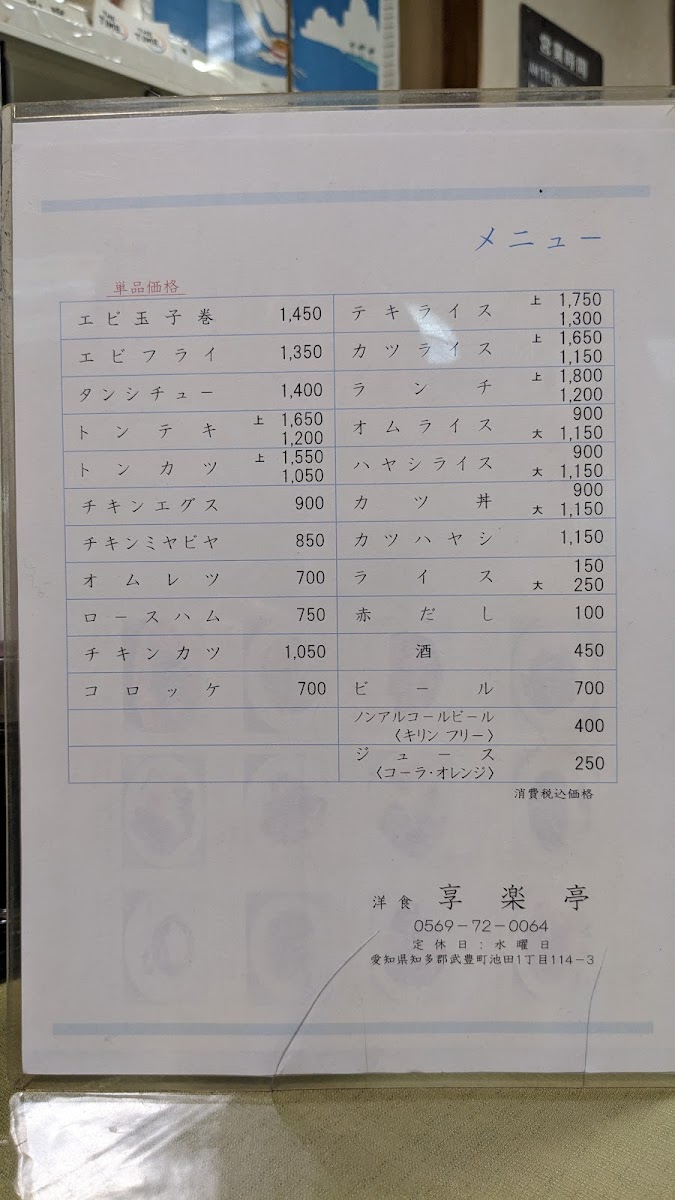 営業時間
メニュー
単品価格
エビ玉子巻 1,450
エビフライ 1,350
タンシチュー 1,400
トンテキ 上 1,650
1,200
トンカツ 上 1,550
1,050
チキンエグス 900
チキンミヤビヤ 850
オムレツ 700
ロースハム 750
チキンカツ 1,050
コロッケ 700
テキライス 上 1,750
1,300
カツライス 上 1,650
1,150
ランチ 上 1,800
1,200
オムライス 900
大 1,150
ハヤシライス 900
大 1,150
カツ丼 900
大 1,150
カツハヤシ 1,150
ライス 150
大 250
赤だし 100
酒 450
ビール 700
ノンアルコールビール
〈キリン フリー〉 400
ジュース
〈コーラ・オレンジ〉 250
消費税込価格
洋食 享楽亭
0569-72-0064
定休日:水曜日
愛知県知多郡武豊町池田1丁目114-3